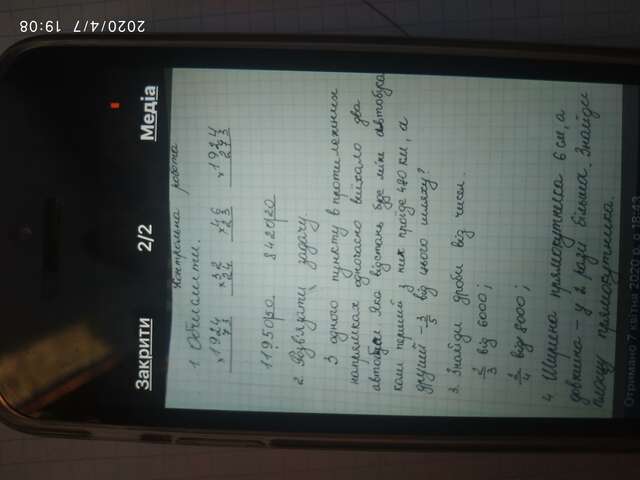 2020/4/7 19:08
Закрити 2/2 Медіа
Контрольна робота
1. Обчислити.
×1924 ×32 ×46 ×1924
73 24 23 273
11950|50 8420|20
2. Розв'язати задачу.
З одного пункту в протилежних
напрямках одночасно виїхало два
Яка відстань буде між автобуса
ками перший з них пройде 480 км, а
другий - 3/5 від цього шляху?
3. Знайди дроби від чисел.
2/3 від 6000;
2/4 від 8000;
4. Ширина прямокутника 6 см, а
довжина - у 2 рази більша. Знайди
площу прямокутника.